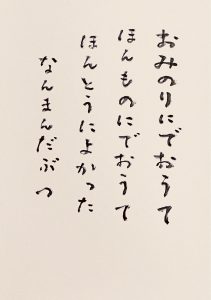 おみのりにでおうて
ほんものにでおうて
ほんとうによかった
なんまんだぶつ